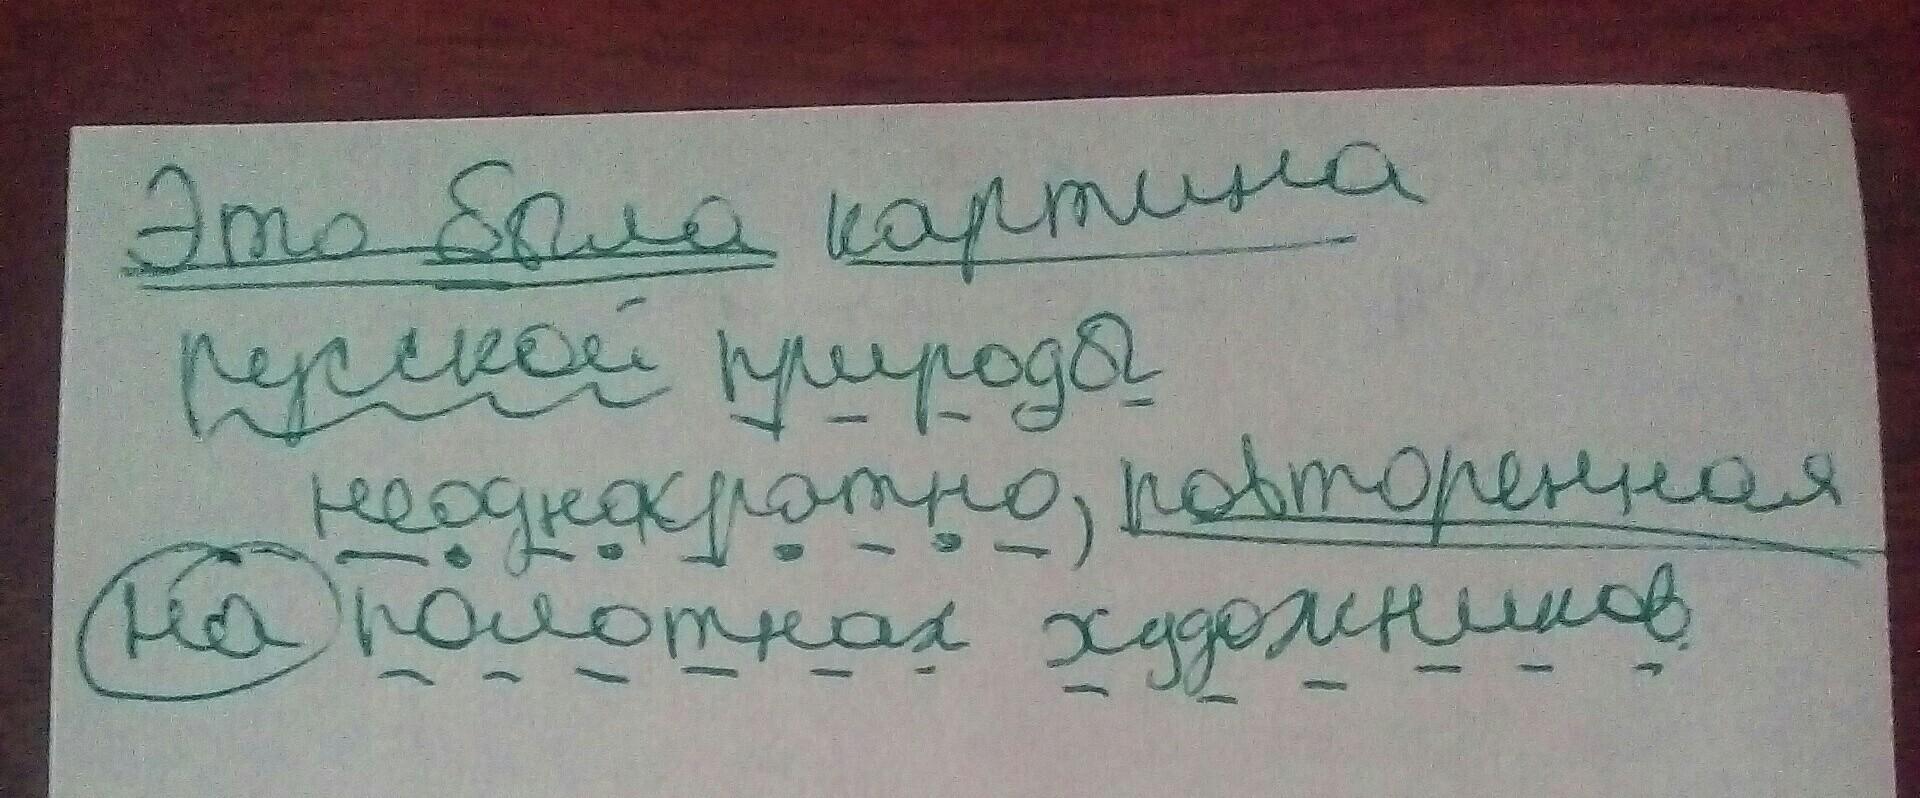 Это была картина
русской природы
неоднократно, повторенная
на полотнах художников